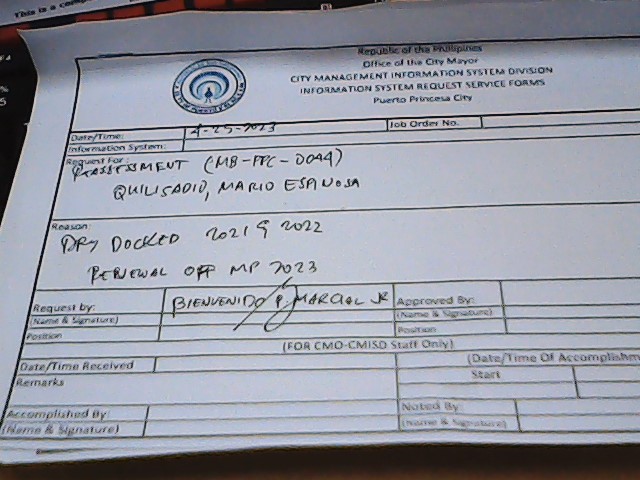 This is a
Republic of the Philippines
Office of the City Mayor
CITY MANAGEMENT INFORMATION SYSTEM DIVISION
INFORMATION SYSTEM REQUEST SERVICE FORMS
Puerto Princesa City
Date/Time: 4-25-2023 Job Order No.
Information System:
Request For:
REASSESSMENT (MB-PPC-0044)
QUILISADIO, MARIO ESPINOSA
Reason:
DRY DOCKED 2021 & 2022
RENEWAL OFF MP 2023
Request by: BIENVENIDO P. MARCIAL JR Approved By:
(Name & Signature) (Name & Signature)
Position Position
(FOR CMO-CMISD Staff Only)
Date/Time Received (Date/Time Of Accomplishm
Remarks Start
Accomplished By: Noted By
(Name & Signature) (Name & Signature)